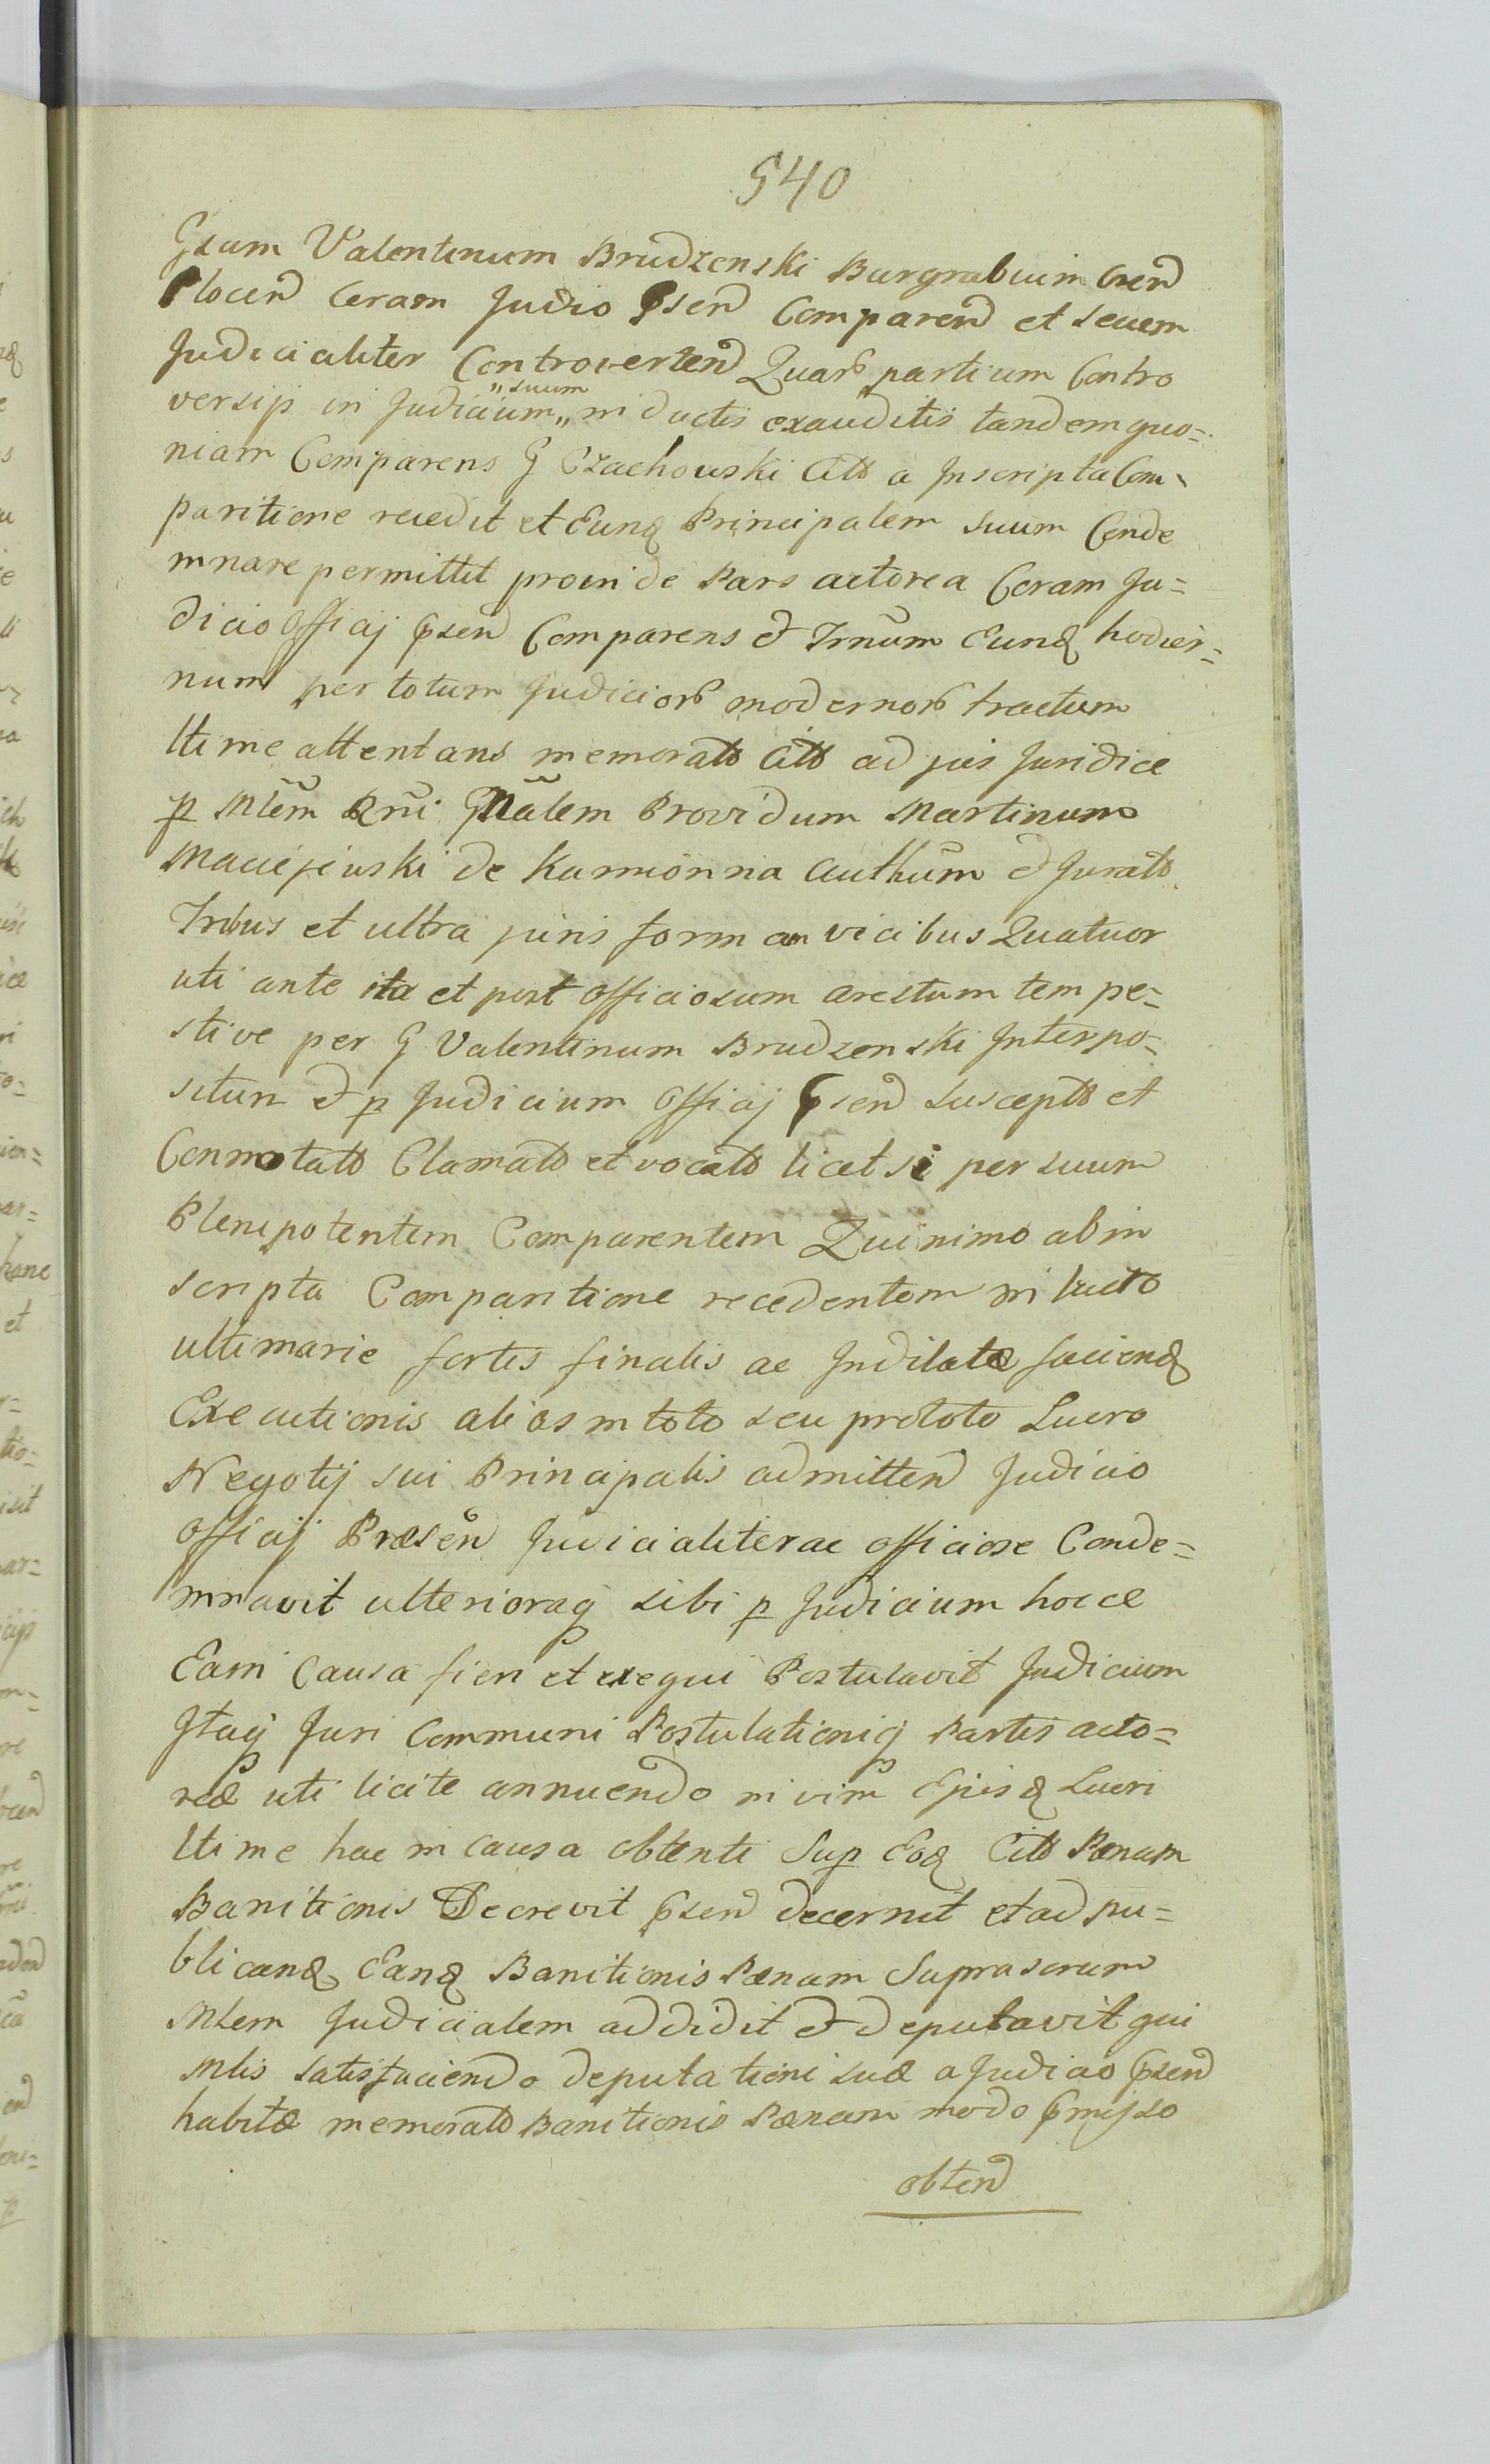 540
Gsum Valentinum Brudzenski Burgrabium Cren̄d
Plocen̄d Coram Judio Psen̄d Comparen̄d et secum
Judicialiter Controverten̄d Quarū partium Contro
versijs in Judicium „suum„ inductis exauditis tandem quo=
niam Comparens G Czachowski Citto a Inscripta Com=
paritione recedit et Eunq̃ Principalem suum Conde
mnare permittit proinde Pars actorea Coram Ju=
dicio Officij Psen̄d Comparens & Trnūm Eunq̃ hodier=
num per totum Judiciorū modernorū tractum
ltime attentans memoratū Cittū ad jus Juridice
p Mlēm Rni GNālem Providum Martinum
Maciejewski de Kamionna authūm & Juratū
Tribus et ultra juris formam vicibus Quatuor
uti ante ita et post Officiosum arestum tempe=
stive per G Valentinum Brudzenski Interpo=
situm & p Judicium Officij Psen̄d susceptū et
Connotatū Clamatū et vocatū licet si per suum
Plenipotentem Comparentem Quinimo ab in
scripta Comparitione recedentem in lucro
ultimarie fortis finalis ac Indilatæ facienq̃
Executionis alias in toto seu pro toto Lucro
Negotij sui Principalis admitten̄d Judicio
Officij Præsen̄d Judicialiter ac officiose Conde=
mnavit ulterioraq̃ sibi p Judicium hocce
Eam Causa fieri et exequi Postulavit Judicium
Itaq̃ Juri Communi Postulationiq̃ Partis acto=
reæ uti licite annuendo in vim Ejusq̃ Lucri
ltime hac in causa obtenti Sup Eoq̃ Citto Pænam
Banitionis Decrevit Psen̄d decernit et ad pu=
blicanq̃ Eanq̃ Banitionis Pænam Suprascrum
Mlem Judicialem addidit & deputavit qui
Mlis satisfaciendo deputationi suæ a Judicio Psen̄d
habitæ memoratū Banitionis Pænam modo Pmisso
obten̄d